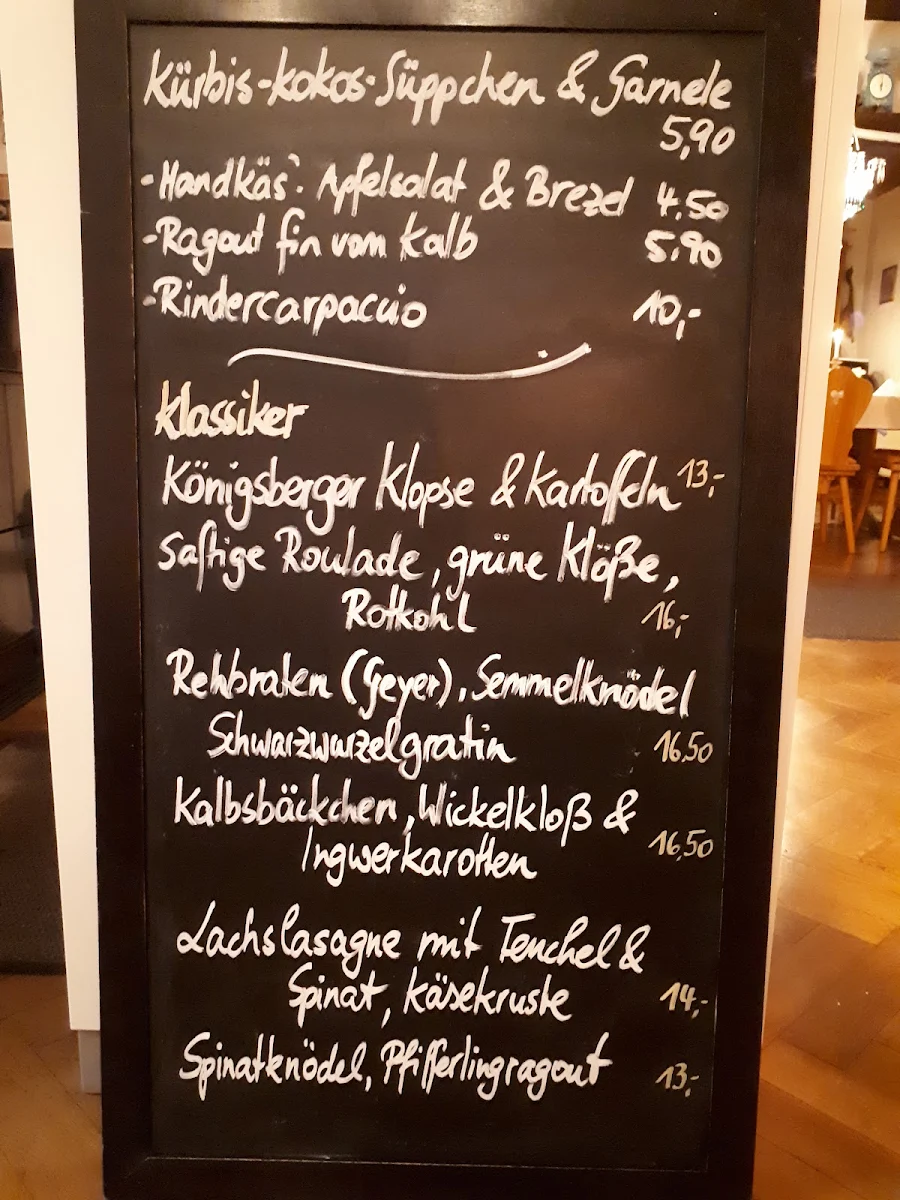 Kürbis-Kokos-Süppchen & Garnele
5,90
-Handkäs: Apfelsalat & Brezel 4.50
-Ragout fin vom Kalb 5.90
-Rindercarpaccio 10,-
Klassiker
Königsberger Klopse & Kartoffeln 13,-
Saftige Roulade, grüne Klöße,
Rotkohl 16,-
Rehbraten (Geyer), Semmelknödel
Schwarzwurzelgratin 16,50
Kalbsbäckchen, Wickelkloß &
Ingwerkarotten 16,50
Lachslasagne mit Fenchel &
Spinat, Käsekruste 14,-
Spinatknödel, Pfifferlingragout 13,-